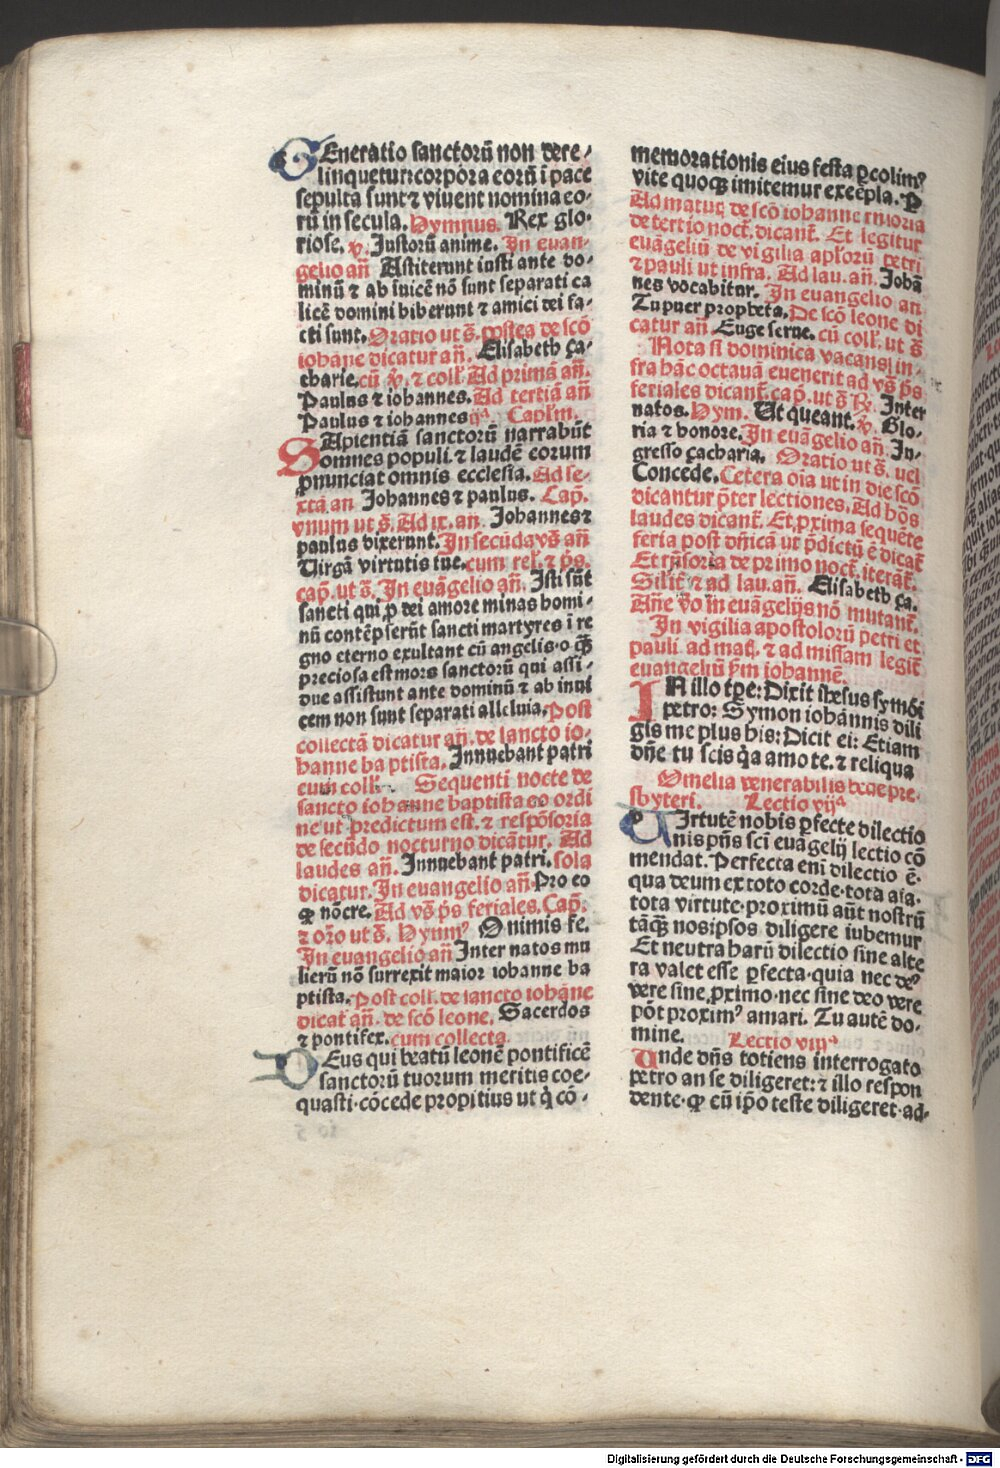 GEneratio sanctorū non dere⸗
linquetur:corpora eorū ī pace
sepulta sunt ⁊ viuent nomina eo⸗
rū in secula. Hymnus. Rex glo⸗
riose. ꝟ. Justorū anime. In euan⸗
gelio añ Astiterunt iusti ante do⸗
minū ⁊ ab īuicē nō sunt separati ca
licē domini biberunt ⁊ amici dei fa⸗
cti sunt. Oratio ut s̄. postea de scō
iohāne dicatur añ. Elisabeth ça⸗
charie. cū ꝟ. ⁊ coll̄. Ad primā añ.
Paulus ⁊ iohannes. Ad tertiā añ
Paulus ⁊ iohannes ijᵃ. Capl̄m.
SApientiā sanctorū narrabūt
omnes populi. ⁊ laudē eorum
ꝓnunciat omnis ecclesia. Ad se⸗
xtā an Johannes ⁊ paulus. Cap̄.
vnum ut s̄. Ad ix. an. Johannes ⁊
paulus dixerunt. In secūdavs̄ añ
Virgā virtutis tue. cum rel̄. ⁊ p̄s.
cap̄. ut s̄. In euāgelio añ. Isti sūt
sancti qui ꝓ dei amore minas homi⸗
nū contēpserūt sancti martyres ī re
gno eterno exultant cū angelis·o ꝙ̄
preciosa est mors sanctorū qui assi⸗
due assistunt ante dominū ⁊ ab inui
cem non sunt separati alleluia. Post
collectā dicatur añ. de sancto io⸗
hanne baptista. Innuebant patri
cum coll̄. Sequenti nocte de
sancto iohanne baptista eo ordi
ne ut predictum est. ⁊ respōsoria
de secūdo nocturno dicātur. Ad
laudes añ. Innuebant patri. sola
dicatur. In euangelio añ. Pro eo
ꝙ nōcre. Ad vs̄ p̄s feriales. Cap̄.
⁊ orō ut s̄. Hymnꝰ O nimis fe.
In euangelio añ Inter natos mu
lierū nō surrexit maior iohanne ba
ptista. Post coll̄. de sancto iohāne
dicat̄ añ. de scō leone. Sacerdos
⁊ pontifex. cum collecta.
DEus qui beatū leonē pontificē
sanctorū tuorum meritis coe⸗
quasti·cōcede propitius ut q̇ cō⸗
memorationis eius festa ꝑcolimꝰ
vite quoqꝫ imitemur exēpla. ꝑ
Ad matut̄. de scō iohanne īnioria
de tertio noct̄. dicant̄. Et legitur
euāgeliū de vigilia apl̄orū petri
⁊ pauli ut infra. Ad lau. añ. Johā
nes vocabitur. In euangelio an
Tu puer propheta. De scō leone di
catur añ Euge serue. cū coll̄. ut s̄
Nota si dominica vacans in⸗
fra hāc octauā euenerit ad vs̄ p̄s
feriales dicant̄. cap̄. ut s̄ ℟. Inter
natos. Hym. Ut queant. ꝟ. Glo⸗
ria ⁊ honore. In euāgelio añ In⸗
gresso çacharia. Oratio ut s̄. uel
Concede. Cetera oīa ut in die scō
dicantur p̄ter lectiones. Ad hōs
laudes dicant̄. Et ꝓxima sequēte
feria post dn̄icā ut p̄dictū ē dicāt̄
Et rn̄soria de primo noct̄. iterāt̄.
Silit̄ ⁊ ad lau. añ. Elisabeth ça.
Añe vo in euāgelijs nō mutant̄.
In vigilia apostolorū petri et
pauli ad mat̄. ⁊ ad missam legit̄
euangeliū p̄m iohannē.
IN illo tp̄e: Dixit ihesus symōi
petro: Symon iohānnis dili
gis me plus his: Dicit ei: Etiam
dn̄e tu scis q̇a amo te. ⁊ reliqua
Omelia venerabilis bede pre⸗
sbyteri. Lectio vijᵃ
UIrtutē nobis ꝑfecte dilectio
nis pn̄s scī euāgelij lectio cō
mendat. Perfecta enī dilectio ē·
qua deum ex toto corde·tota aīa·
tota virtute·proximū aūt nostrū
tāqꝫ nosipsos diligere iubemur
Et neutra harū dilectio sine alte
ra valet esse ꝑfecta·quia nec deꝰ
vere sine ꝓximo·nec sine deo vere
pōt proximꝰ amari. Tu autē do⸗
mine. Lectio viijᵃ
Unde dn̄s totiens interrogato
petro an se diligeret: ⁊ illo respon
dente·ꝙ eū ip̄o teste diligeret·ad⸗
Digitalisierung gefördert durch die Deutsche Forschungsgemeinschaft - DFG